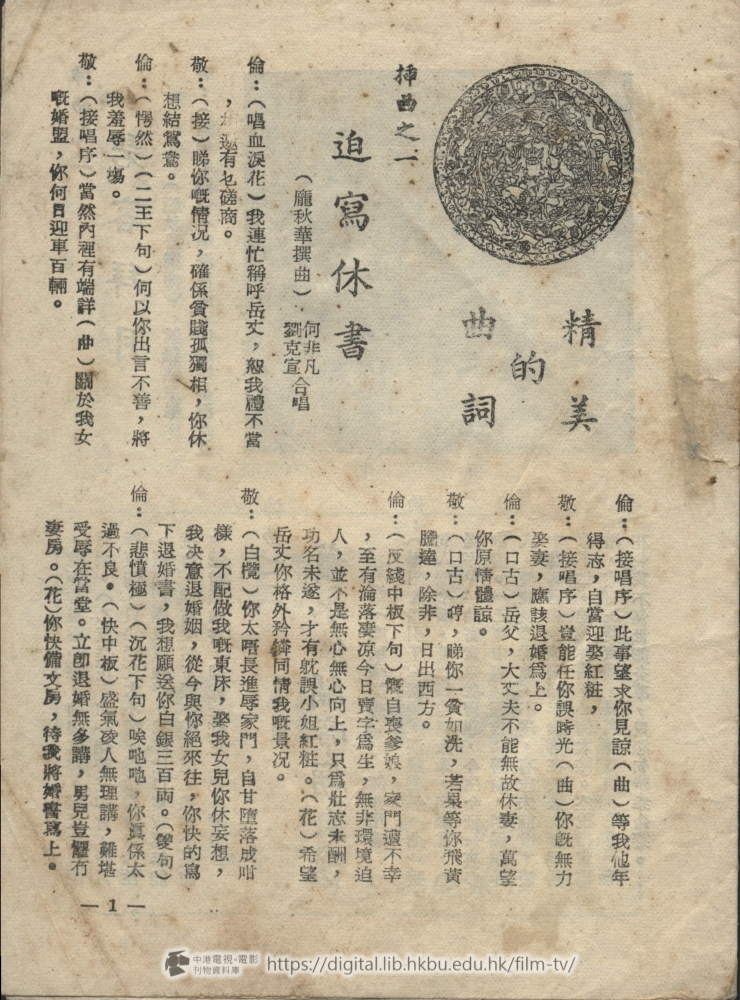 精美的曲詞
插曲之一
迫寫休書
（龐秋華撰曲）
何非凡
劉克宣
合唱
倫：（唱血淚花）我連忙稱呼岳丈，恕我禮不當
，　還有乜磋商。
敬：（接）睇你嘅情况，確係貧賤孤獨相，你休
想結鴛鴦。
倫：（愕然）（二王下句）何以你出言不善，將
我羞辱一塲。
敬：（接唱序）當然內裡有端詳（曲）關於我女
嘅婚盟，你何日迎車百輛。
倫：（接唱序）此事望求你見諒（曲）等我他年
得志，自當迎娶紅粧，
敬：（接唱序）豈能任你誤時光（曲）你旣無力
娶妻，應該退婚爲上。
倫：（口古）岳父，大丈夫不能無故休妻，萬望
你原情體諒。
敬：（口古）哼，睇你一貧如洗，若果等你飛黃
騰達，除非，日出西方。
倫：（反綫中板下句）慨自喪爹娘，家門遭不幸
，至有淪落凄凉今日賣字爲生，無非環境迫
人，並不是無心無心向上，只爲壯志未酬，
功名未遂，才有躭誤小姐紅粧。（花）希望
岳丈你格外矜憐同情我嘅景况。
敬：（白欖）你太唔長進辱家門，自甘墮落成咁
樣，不配做我嘅東床，娶我女兒你休妄想，
我决意退婚姻，從今與你絕來往，你快的寫
下退婚書，我想願送你白銀三百両。（煞句）
倫：（悲憤極）（沉花下句）唉吔吔，你眞係太
過不良。（快中板）盛氣凌人無理講，難堪
受辱在當堂。立卽退婚無多講，男兒豈懼冇
妻房。（花）你快備文房，待我將婚書寫上。
— 1 —
中港電視·電影
刊物資料庫
https://digital.lib.hkbu.edu.hk/film-tv/